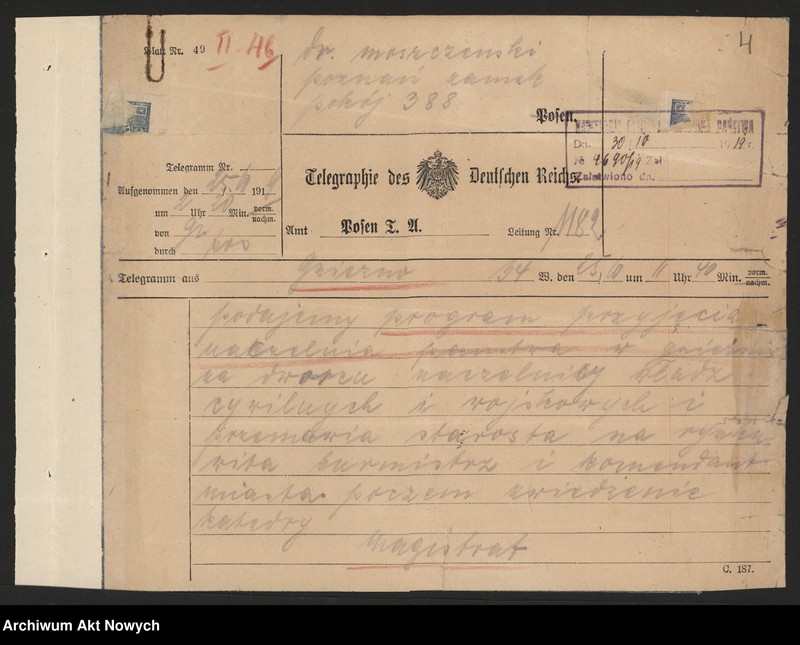 Blatt Nr. 49 II-46
4
dr. moszczenski
poznań zamek
pokój 388
Posen.
Dn. 30/10 1919 r.
№ 4690/19 Zał.
Załatwiono dn.
Telegramm Nr.
Aufgenommen den 191
um Uhr Min. vorm. nachm.
von
durch
Telegraphie des Deutschen Reichs.
Amt Posen T. A. Leitung Nr. 1182
Telegramm aus Gniezno 34 W. den 25/10 um 11 Uhr 40 Min. vorm. nachm.
podajemy program przyjęcia
naczelnika państwa w
na dworcu naczelnicy władz
cywilnych i wojskowych i
starosta na rynku
wita burmistrz i komendant
miasta poczem zwiedzenie
katedry
Magistrat
C. 187.
Archiwum Akt Nowych